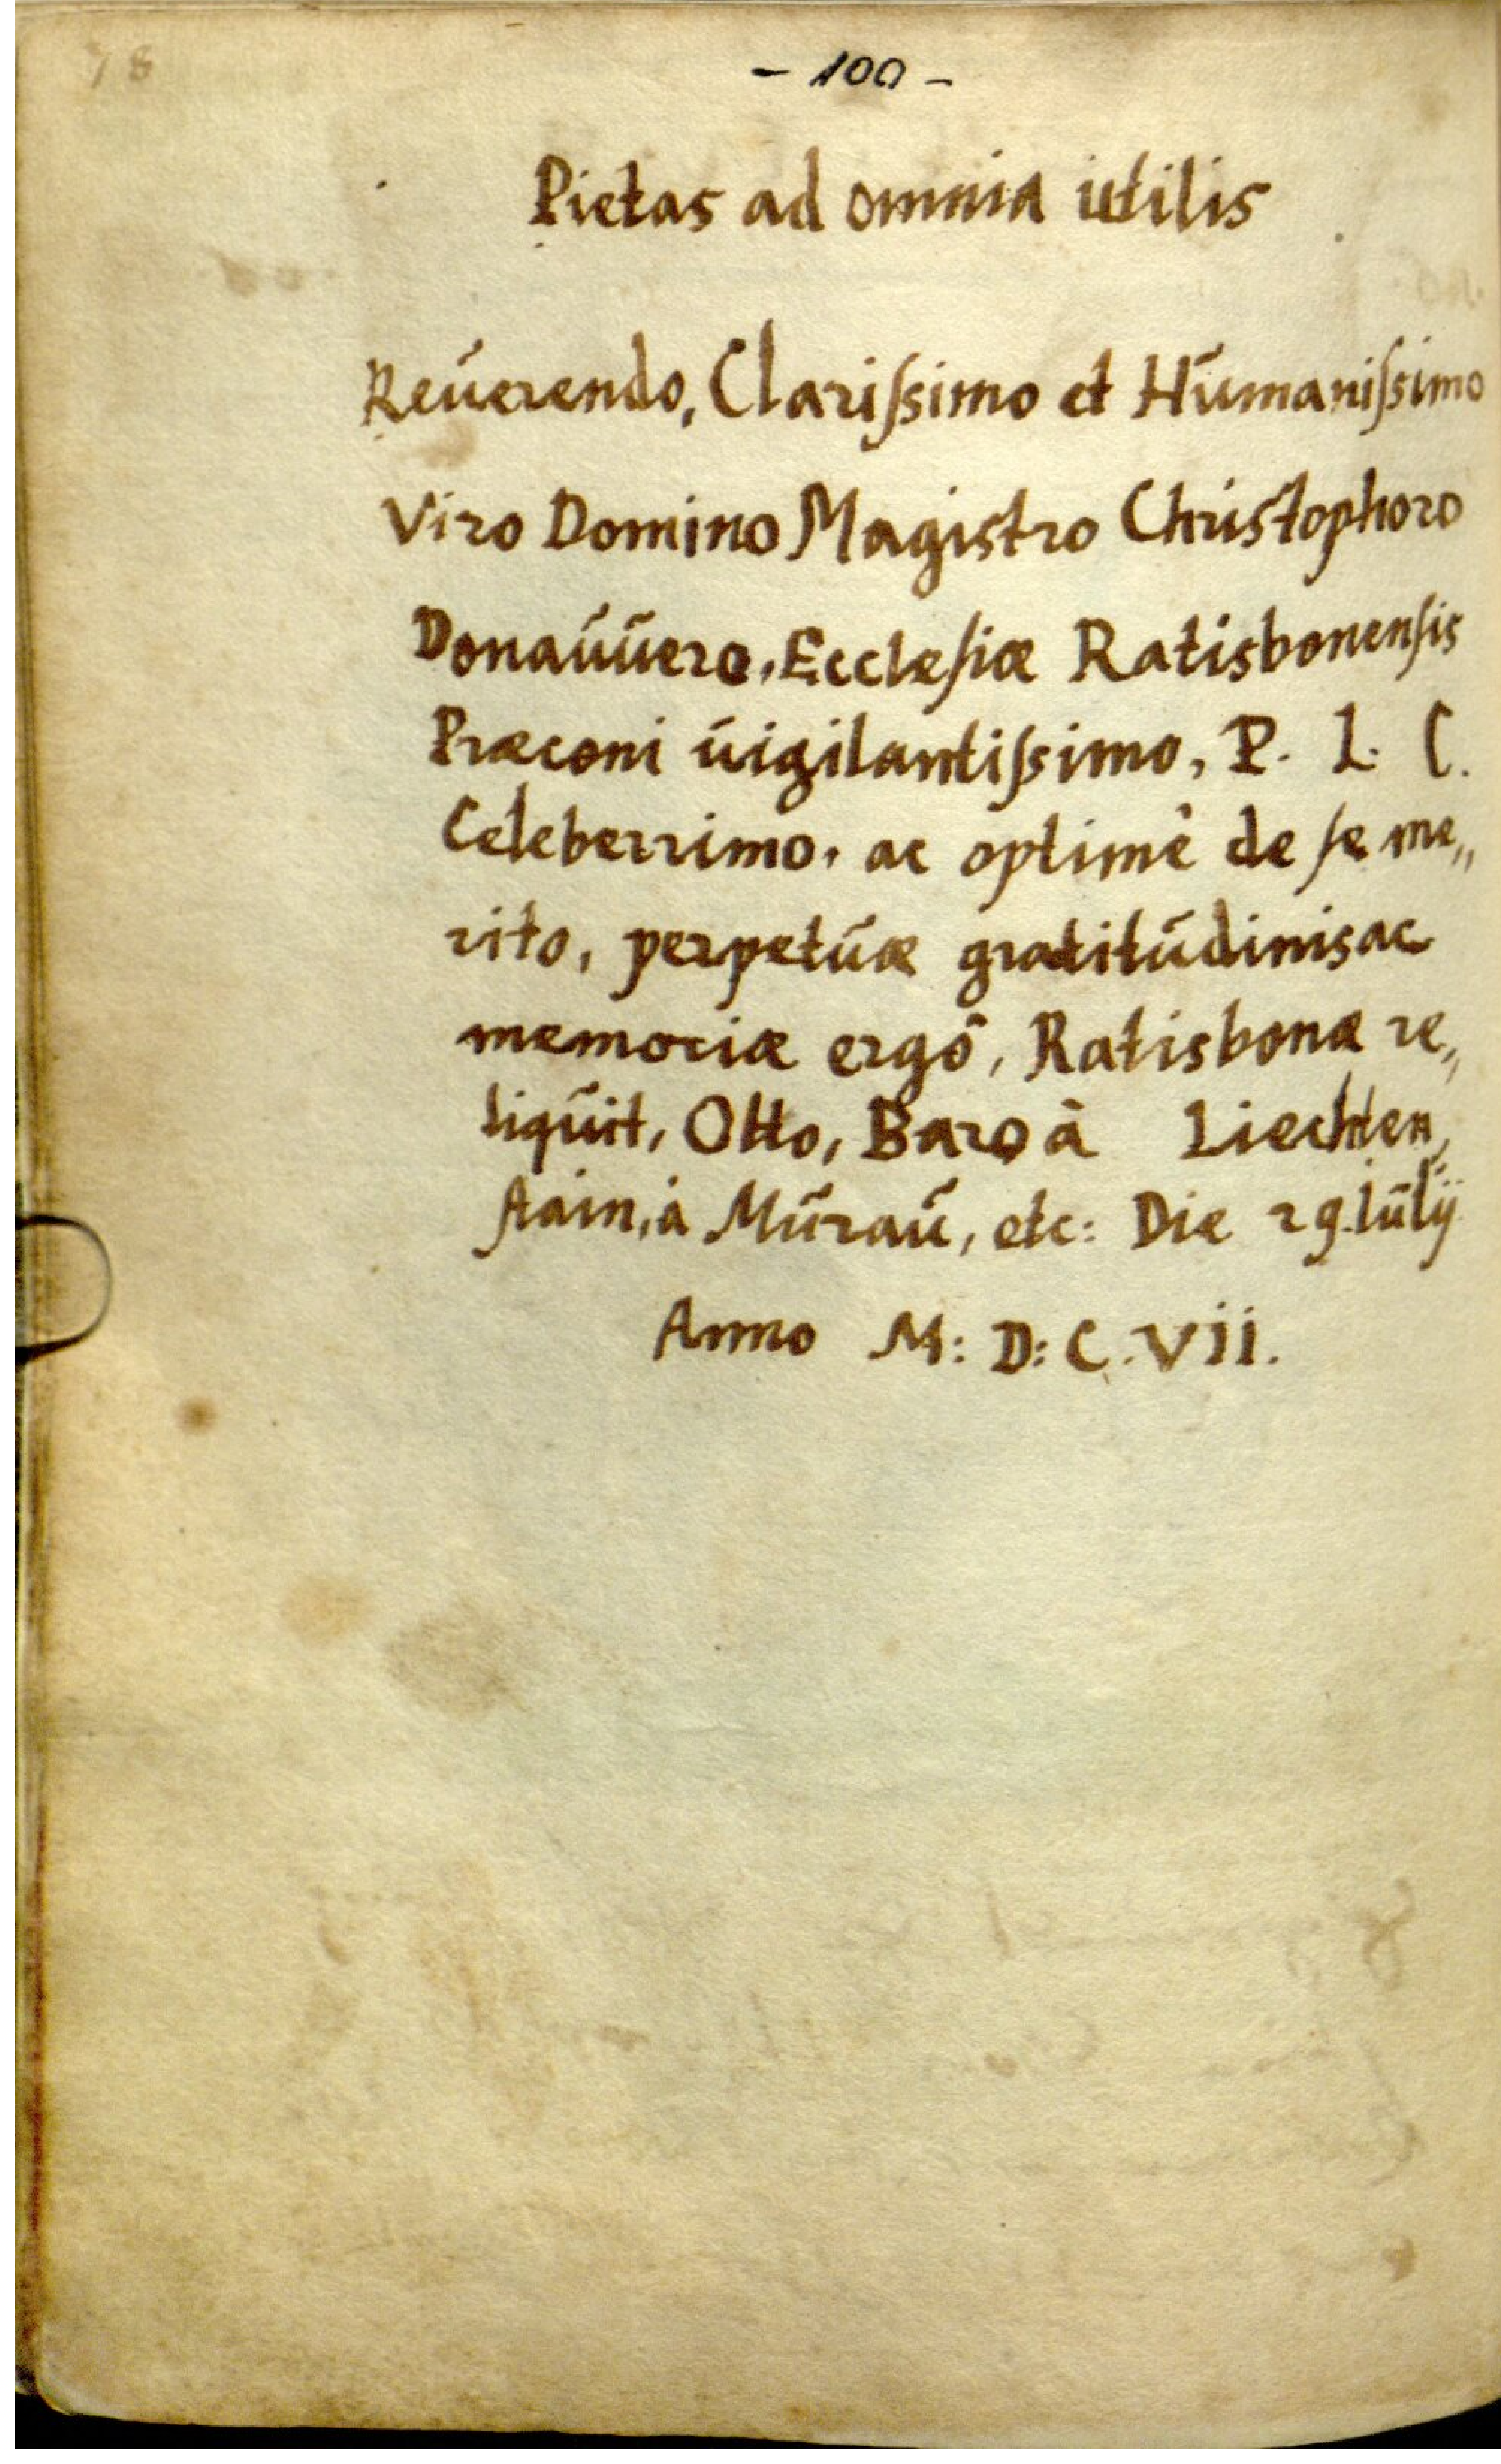 78
- 100 -
Pietas ad omnia utilis
Reūerendo, Clariſsimo et Hūmaniſsimo
Viro Domino Magistro Christophoro
Donaūūero, Eccleſiæ Ratisbonenſis
Præconi ūigilantiſsimo, P. L. C.
Celeberrimo, ac optimè de ſe me„
rito, perpetūæ gratitūdinis ac
memoriæ ergò, Ratisbonæ re„
liqūit, Otto, Baro à Liechten„
ſtain, à Mūraū, etc: Die 29. Iūlij
Anno M: D: C. VII.